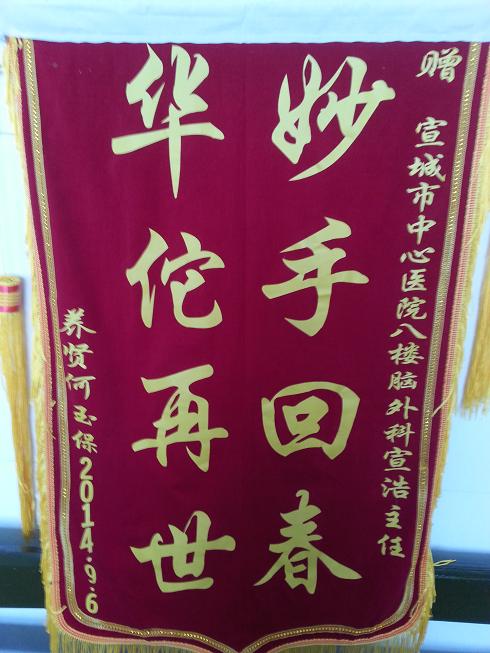 赠 宣城市中心医院八楼脑外科宣浩主任
妙手回春
华佗再世
养贤何玉保2014.9.6